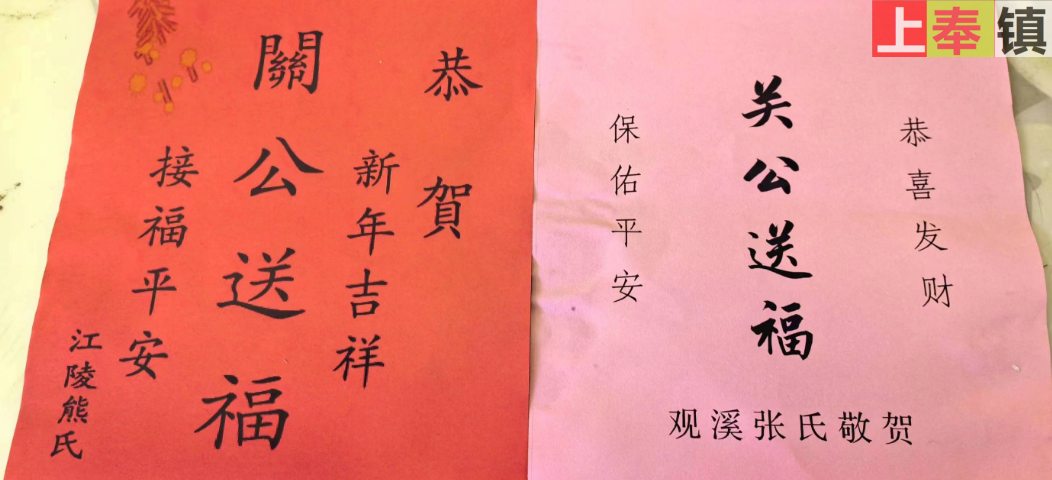 恭賀
新年吉祥
關公送福
接福平安
江陵熊氏
恭喜发财
关公送福
保佑平安
观溪张氏敬贺
上奉镇